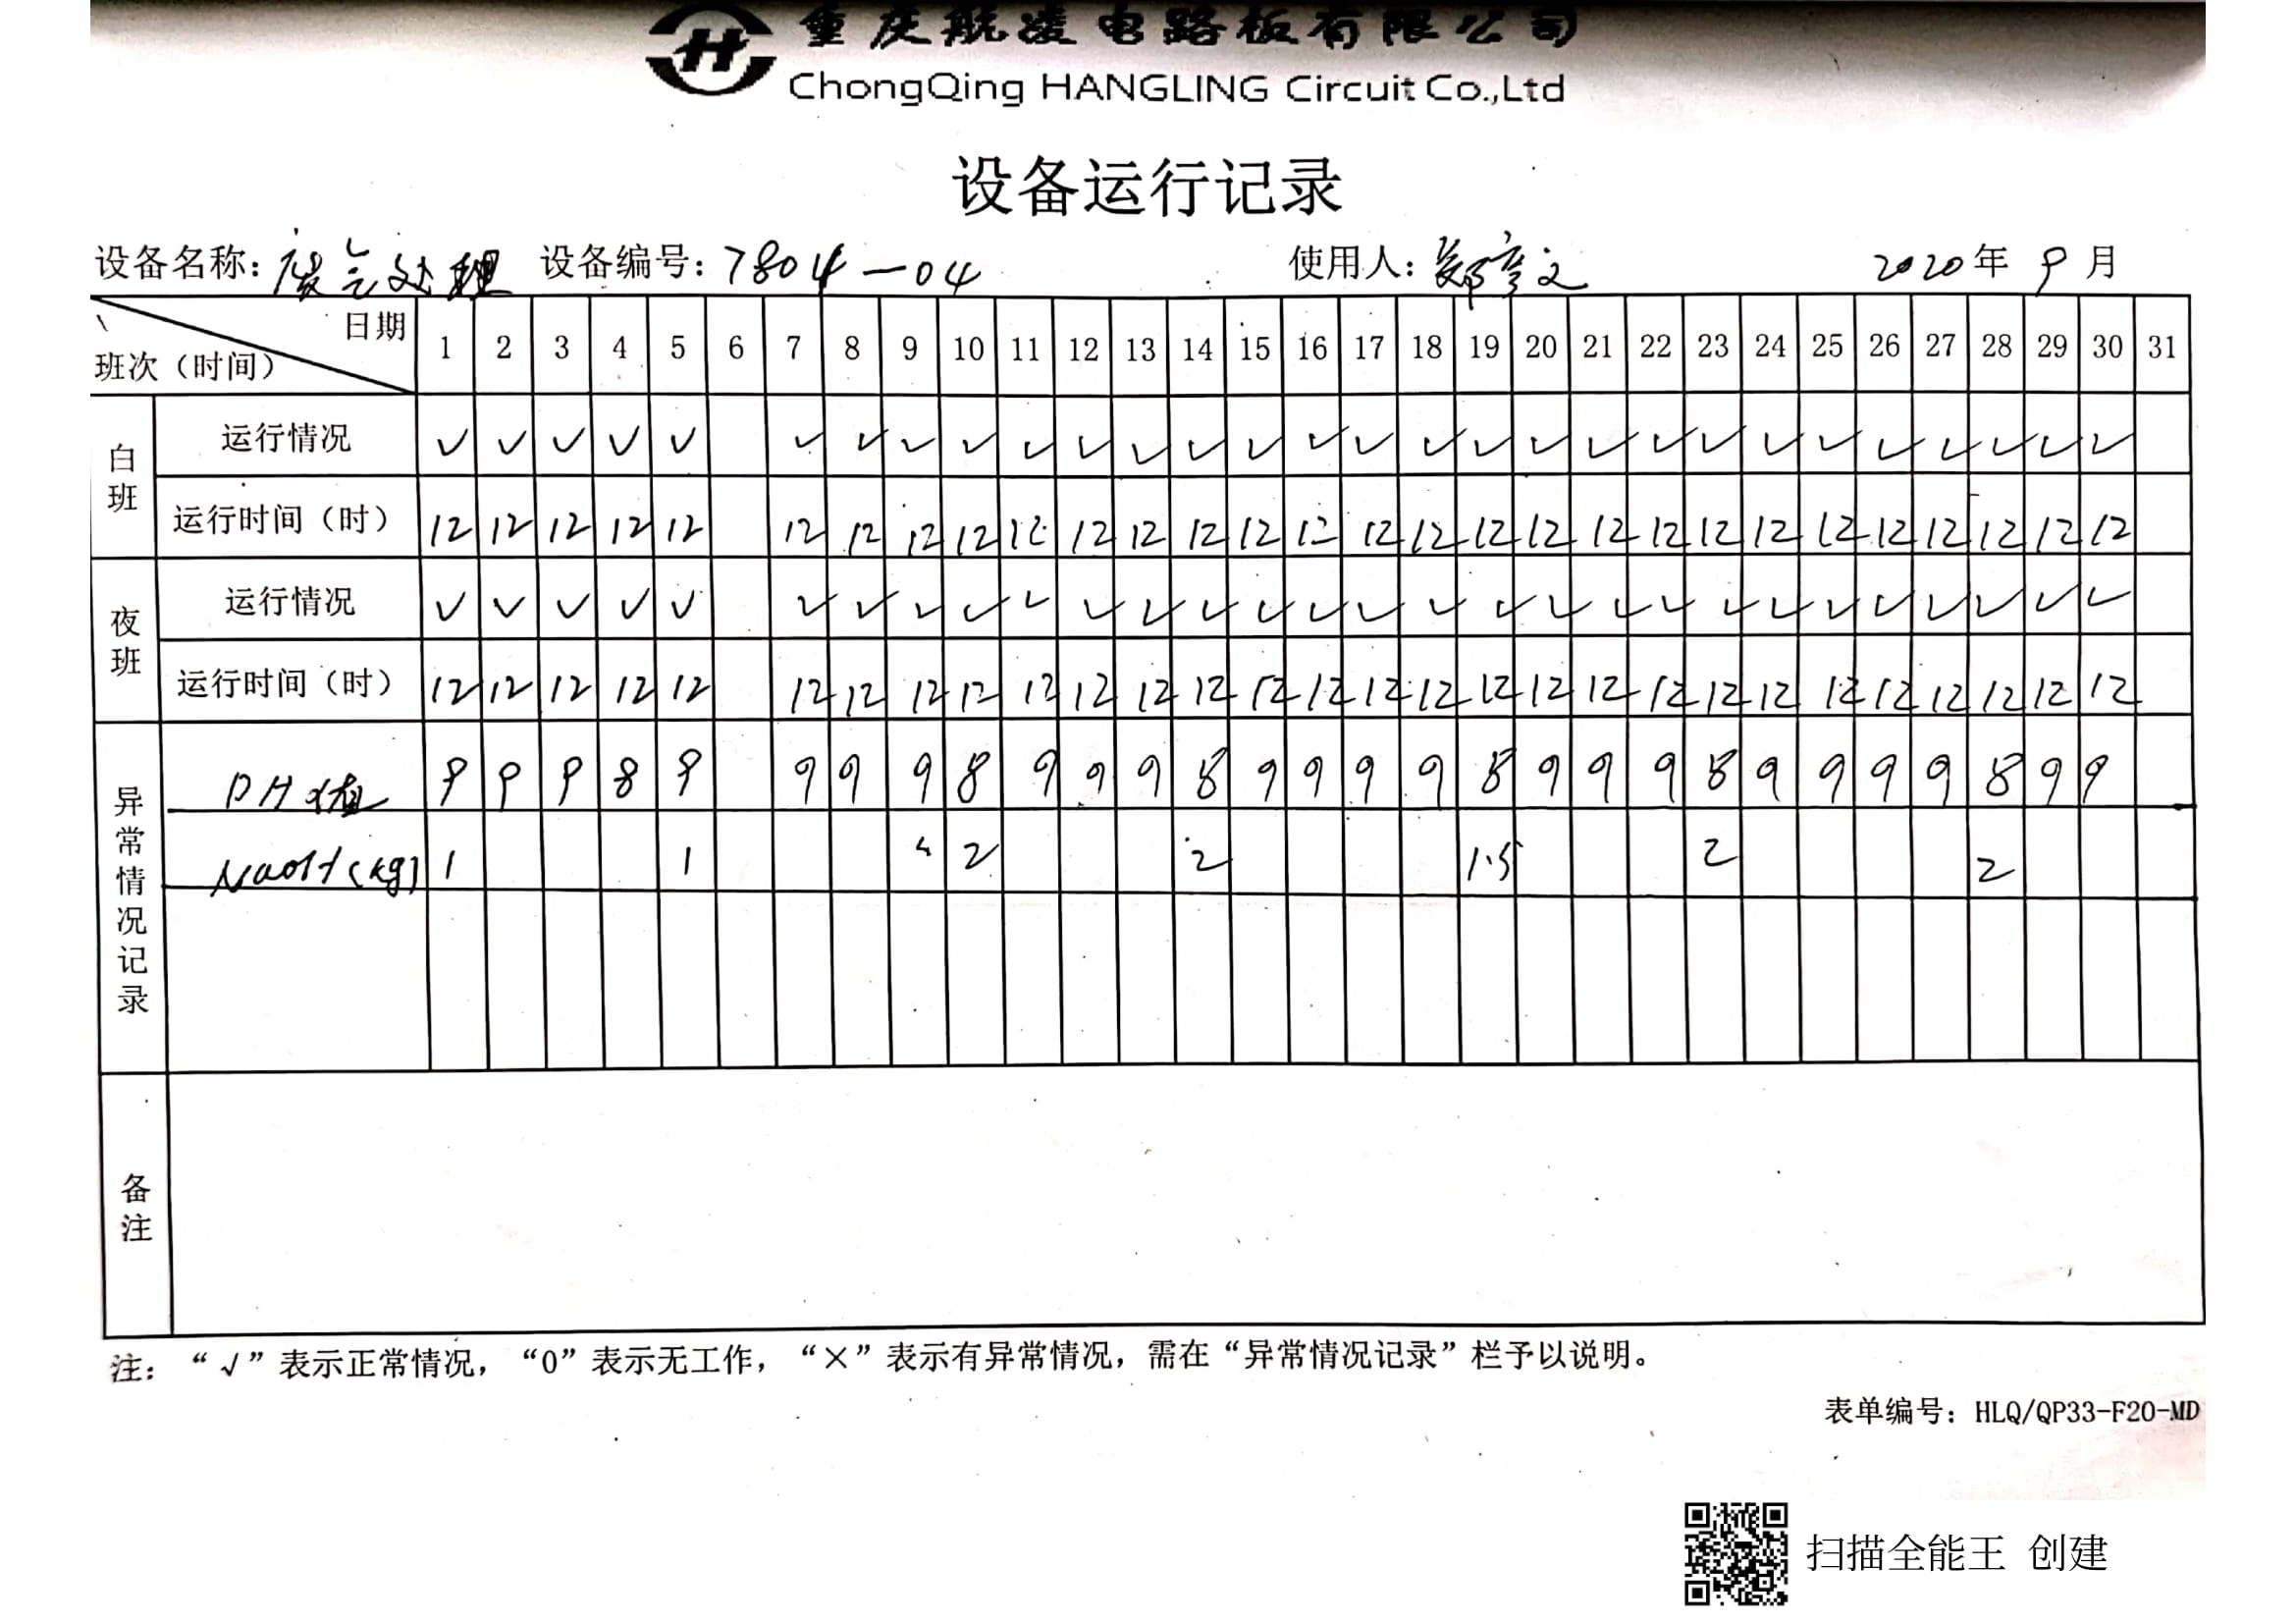 重庆航凌电路板有限公司
ChongQing HANGLING Circuit Co.,Ltd
设备运行记录
设备名称：废气处理 设备编号：7804-04 使用人：郑彦文 2020年 9 月
日期 1 2 3 4 5 6 7 8 9 10 11 12 13 14 15 16 17 18 19 20 21 22 23 24 25 26 27 28 29 30 31
班次（时间）
白班 运行情况 ✓ ✓ ✓ ✓ ✓ ✓ ✓ ✓ ✓ ✓ ✓ ✓ ✓ ✓ ✓ ✓ ✓ ✓ ✓ ✓ ✓ ✓ ✓ ✓ ✓ ✓ ✓ ✓ ✓
运行时间（时） 12 12 12 12 12 12 12 12 12 12 12 12 12 12 12 12 12 12 12 12 12 12 12 12 12 12 12 12 12
夜班 运行情况 ✓ ✓ ✓ ✓ ✓ ✓ ✓ ✓ ✓ ✓ ✓ ✓ ✓ ✓ ✓ ✓ ✓ ✓ ✓ ✓ ✓ ✓ ✓ ✓ ✓ ✓ ✓ ✓ ✓
运行时间（时） 12 12 12 12 12 12 12 12 12 12 12 12 12 12 12 12 12 12 12 12 12 12 12 12 12 12 12 12 12
异常情况记录 PH值 9 9 9 8 9 9 9 9 8 9 9 9 8 9 9 9 9 8 9 9 9 8 9 9 9 9 8 9 9
NaOH(kg) 1 1 2 2 1.5 2 2
备注
注：“√”表示正常情况，“0”表示无工作，“×”表示有异常情况，需在“异常情况记录”栏予以说明。
表单编号：HLQ/QP33-F20-MD
扫描全能王 创建